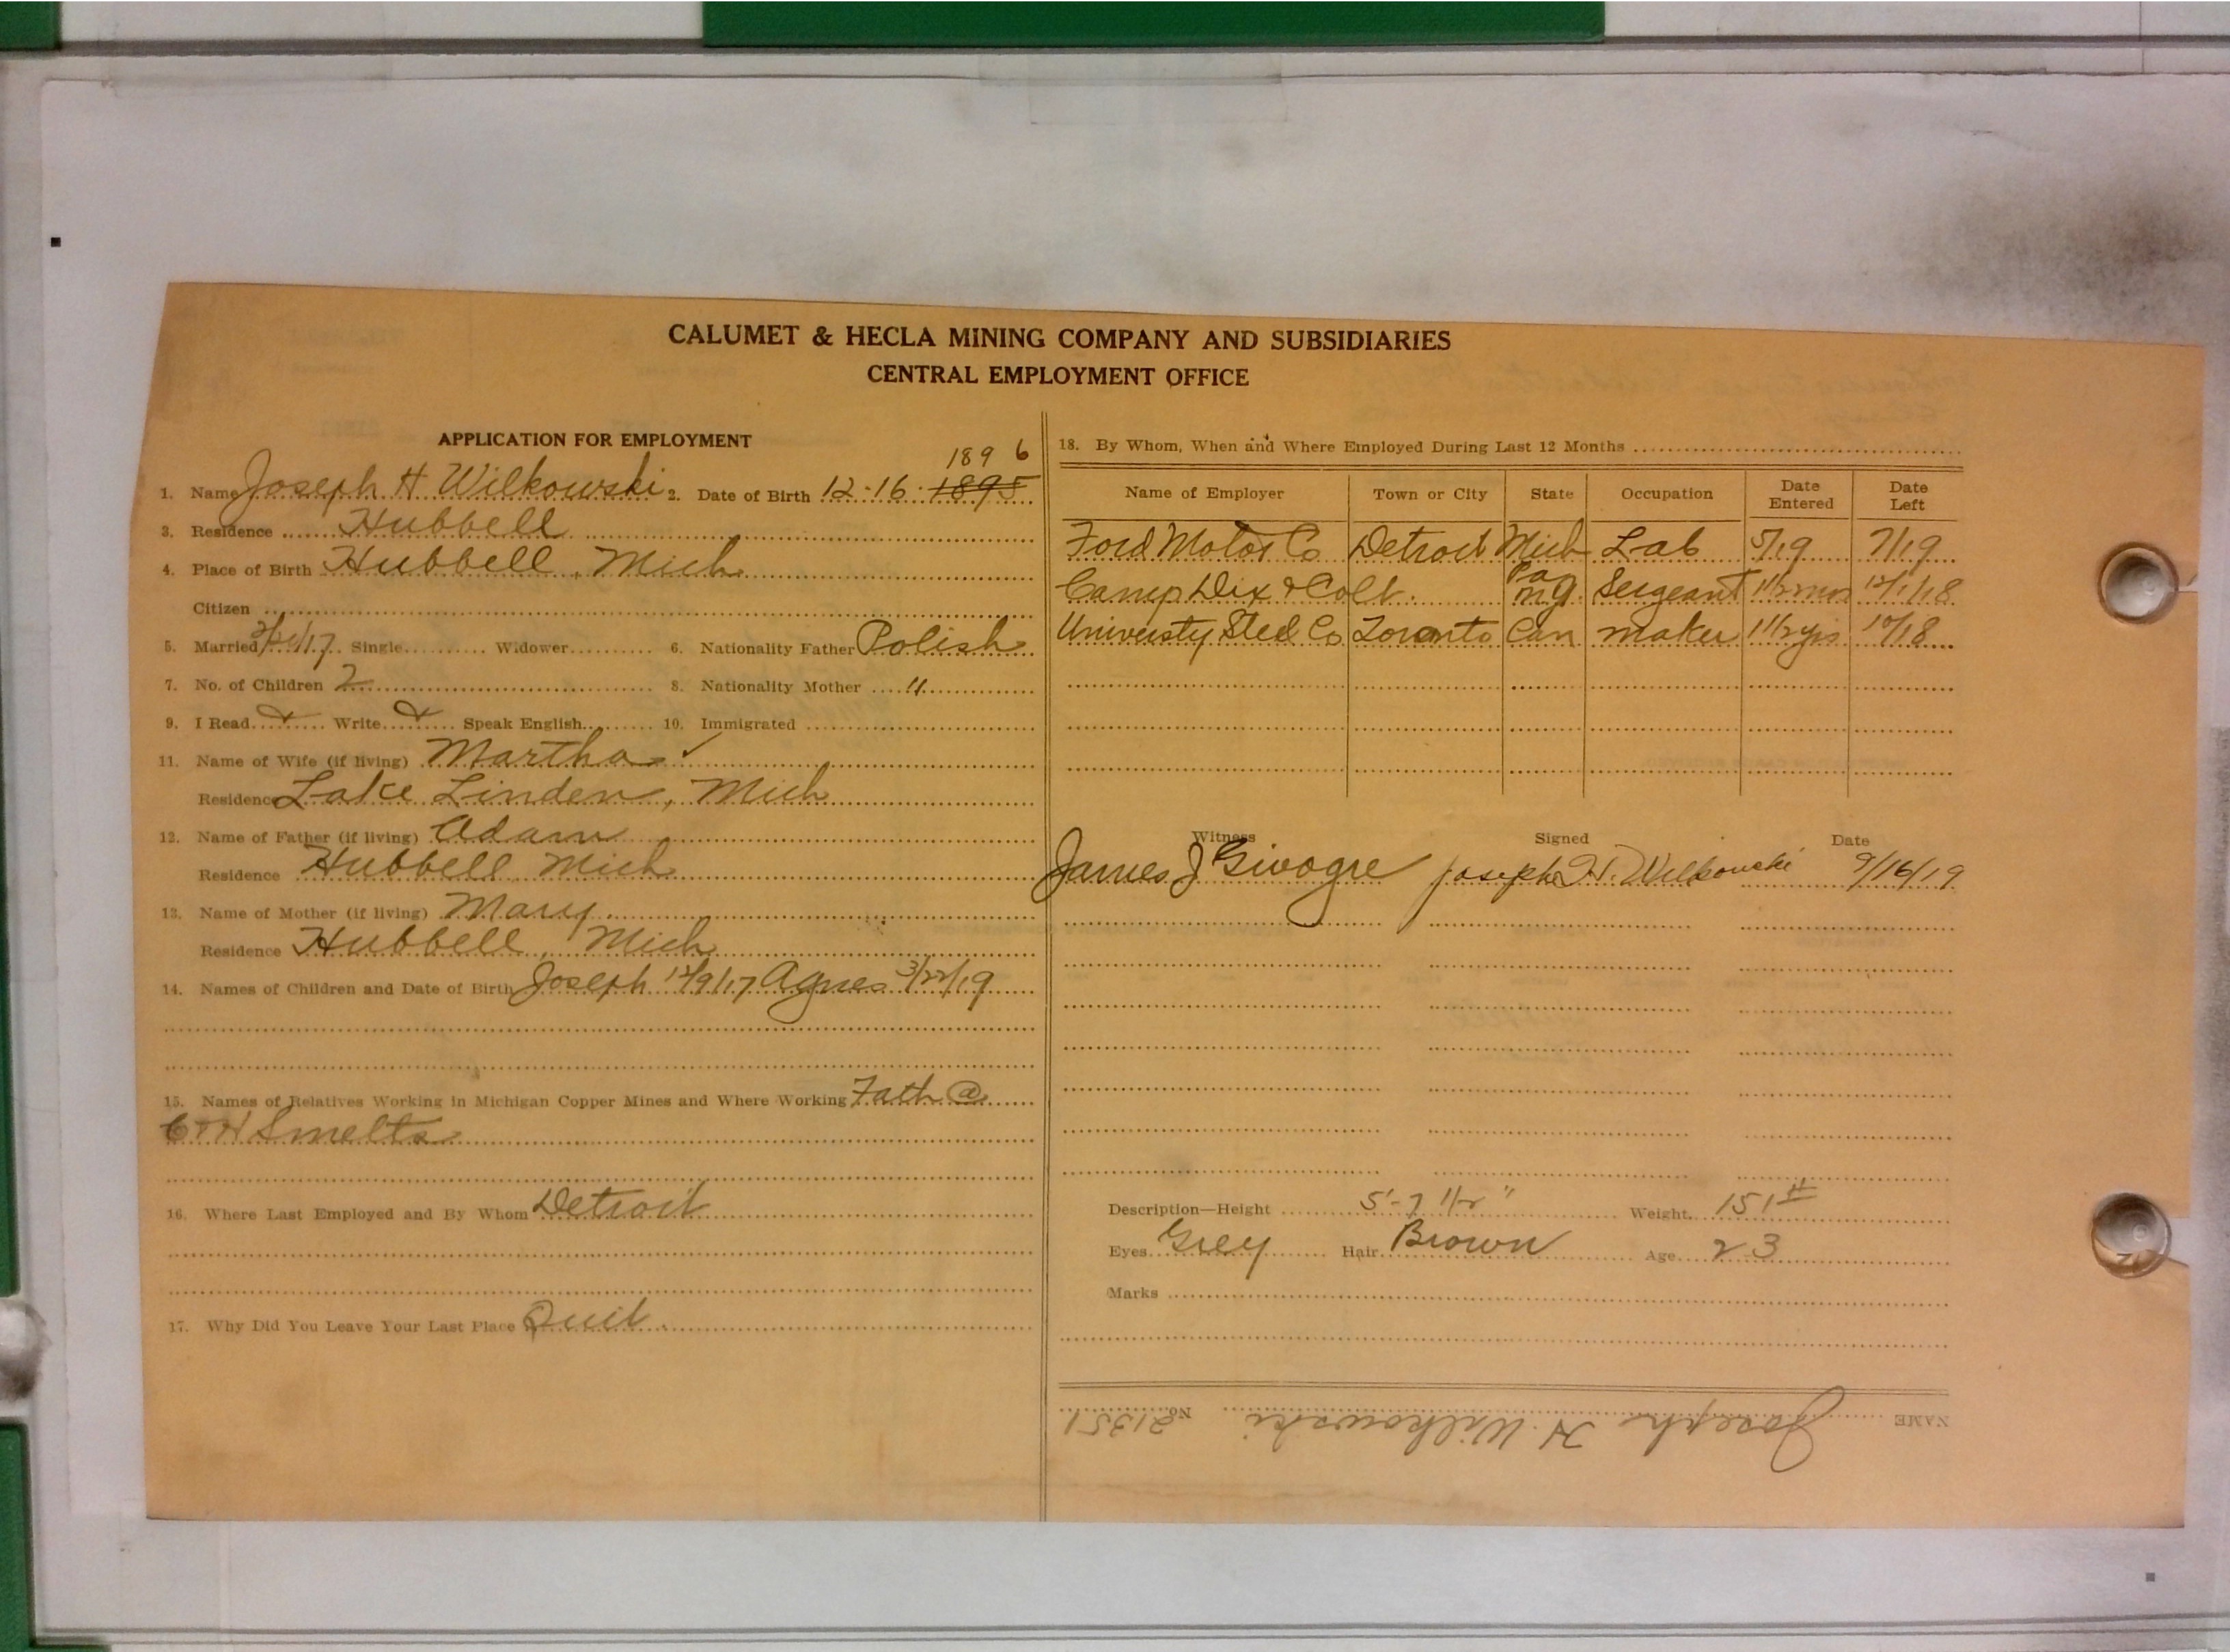 CALUMET & HECLA MINING COMPANY AND SUBSIDIARIES
CENTRAL EMPLOYMENT OFFICE
APPLICATION FOR EMPLOYMENT
189 6
1. Name Joseph H Wilkowski 2. Date of Birth 12-16-1895
3. Residence Hubbell
4. Place of Birth Hubbell, Mich
Citizen
5. Married 2/21/17 Single Widower 6. Nationality Father Polish
7. No. of Children 2 8. Nationality Mother "
9. I Read Write Speak English 10. Immigrated
11. Name of Wife (if living) Martha ✓
Residence Lake Linden, Mich
12. Name of Father (if living) Adam
Residence Hubbell Mich
13. Name of Mother (if living) Mary
Residence Hubbell, Mich
14. Names of Children and Date of Birth Joseph 12/9/17 Agnes 3/22/19
15. Names of Relatives Working in Michigan Copper Mines and Where Working Fath @
C+H Smelts
16. Where Last Employed and By Whom Detroit
17. Why Did You Leave Your Last Place Quit.
18. By Whom, When and Where Employed During Last 12 Months
Name of Employer Town or City State Occupation Date Entered Date Left
Ford Motor Co Detroit Mich Lab 5/19 7/19
Camp Dix & Colt. Sergeant 1 1/2 mos 12/1/18
University Steel Co Toronto Can maker 1 1/2 yrs 10/18
Witness Signed Date
James J Givogre Joseph H. Wilkowski 9/16/19
Description—Height 5'-7 1/2" Weight 151#
Eyes Grey Hair Brown Age 23
Marks
NAME Joseph H. Wilkowski No 21351